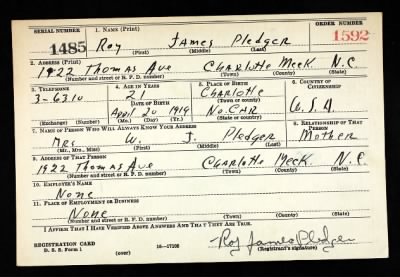 SERIAL NUMBER 1. NAME (Print) ORDER NUMBER
1485 Roy James Pledger 1592
(First) (Middle) (Last)
2. ADDRESS (Print)
1922 Thomas Ave Charlotte Meck N.C.
(Number and street or R. F. D. number) (Town) (County) (State)
3. TELEPHONE 4. AGE IN YEARS 5. PLACE OF BIRTH 6. COUNTRY OF CITIZENSHIP
21 Charlotte
DATE OF BIRTH (Town or county)
3-6310 April 20 1919 No. Car U.S.A.
(Exchange) (Number) (Mo.) (Day) (Yr.) (State or country)
7. NAME OF PERSON WHO WILL ALWAYS KNOW YOUR ADDRESS 8. RELATIONSHIP OF THAT PERSON
Mrs W. J. Pledger Mother
(Mr., Mrs., Miss) (First) (Middle) (Last)
9. ADDRESS OF THAT PERSON
1922 Thomas Ave Charlotte Meck N.C.
(Number and street or R. F. D. number) (Town) (County) (State)
10. EMPLOYER'S NAME
None
11. PLACE OF EMPLOYMENT OR BUSINESS
None
(Number and street or R. F. D. number) (Town) (County) (State)
I AFFIRM THAT I HAVE VERIFIED ABOVE ANSWERS AND THAT THEY ARE TRUE.
REGISTRATION CARD 16-17105 Roy James Pledger
D. S. S. Form 1 (over) (Registrant's signature)